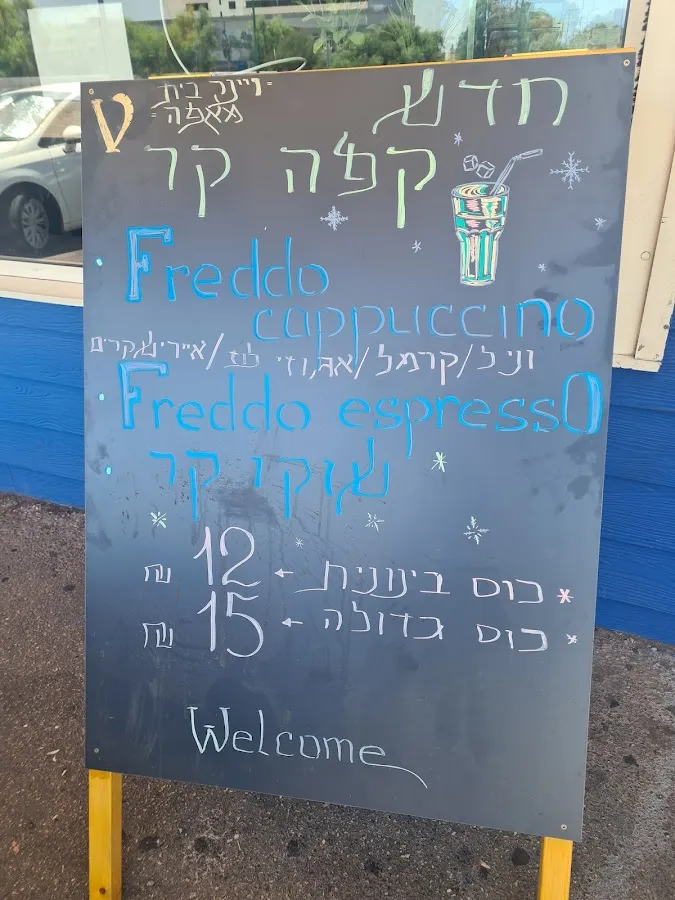 חדש
ויינק בית
מאפה
קפה קר
Freddo
cappuccino
וניל/קרמל/אגוזי לוז/איירישקרים
Freddo espresso
שוקו קר
כוס בינונית ← 12 ₪
כוס גדולה ← 15 ₪
Welcome